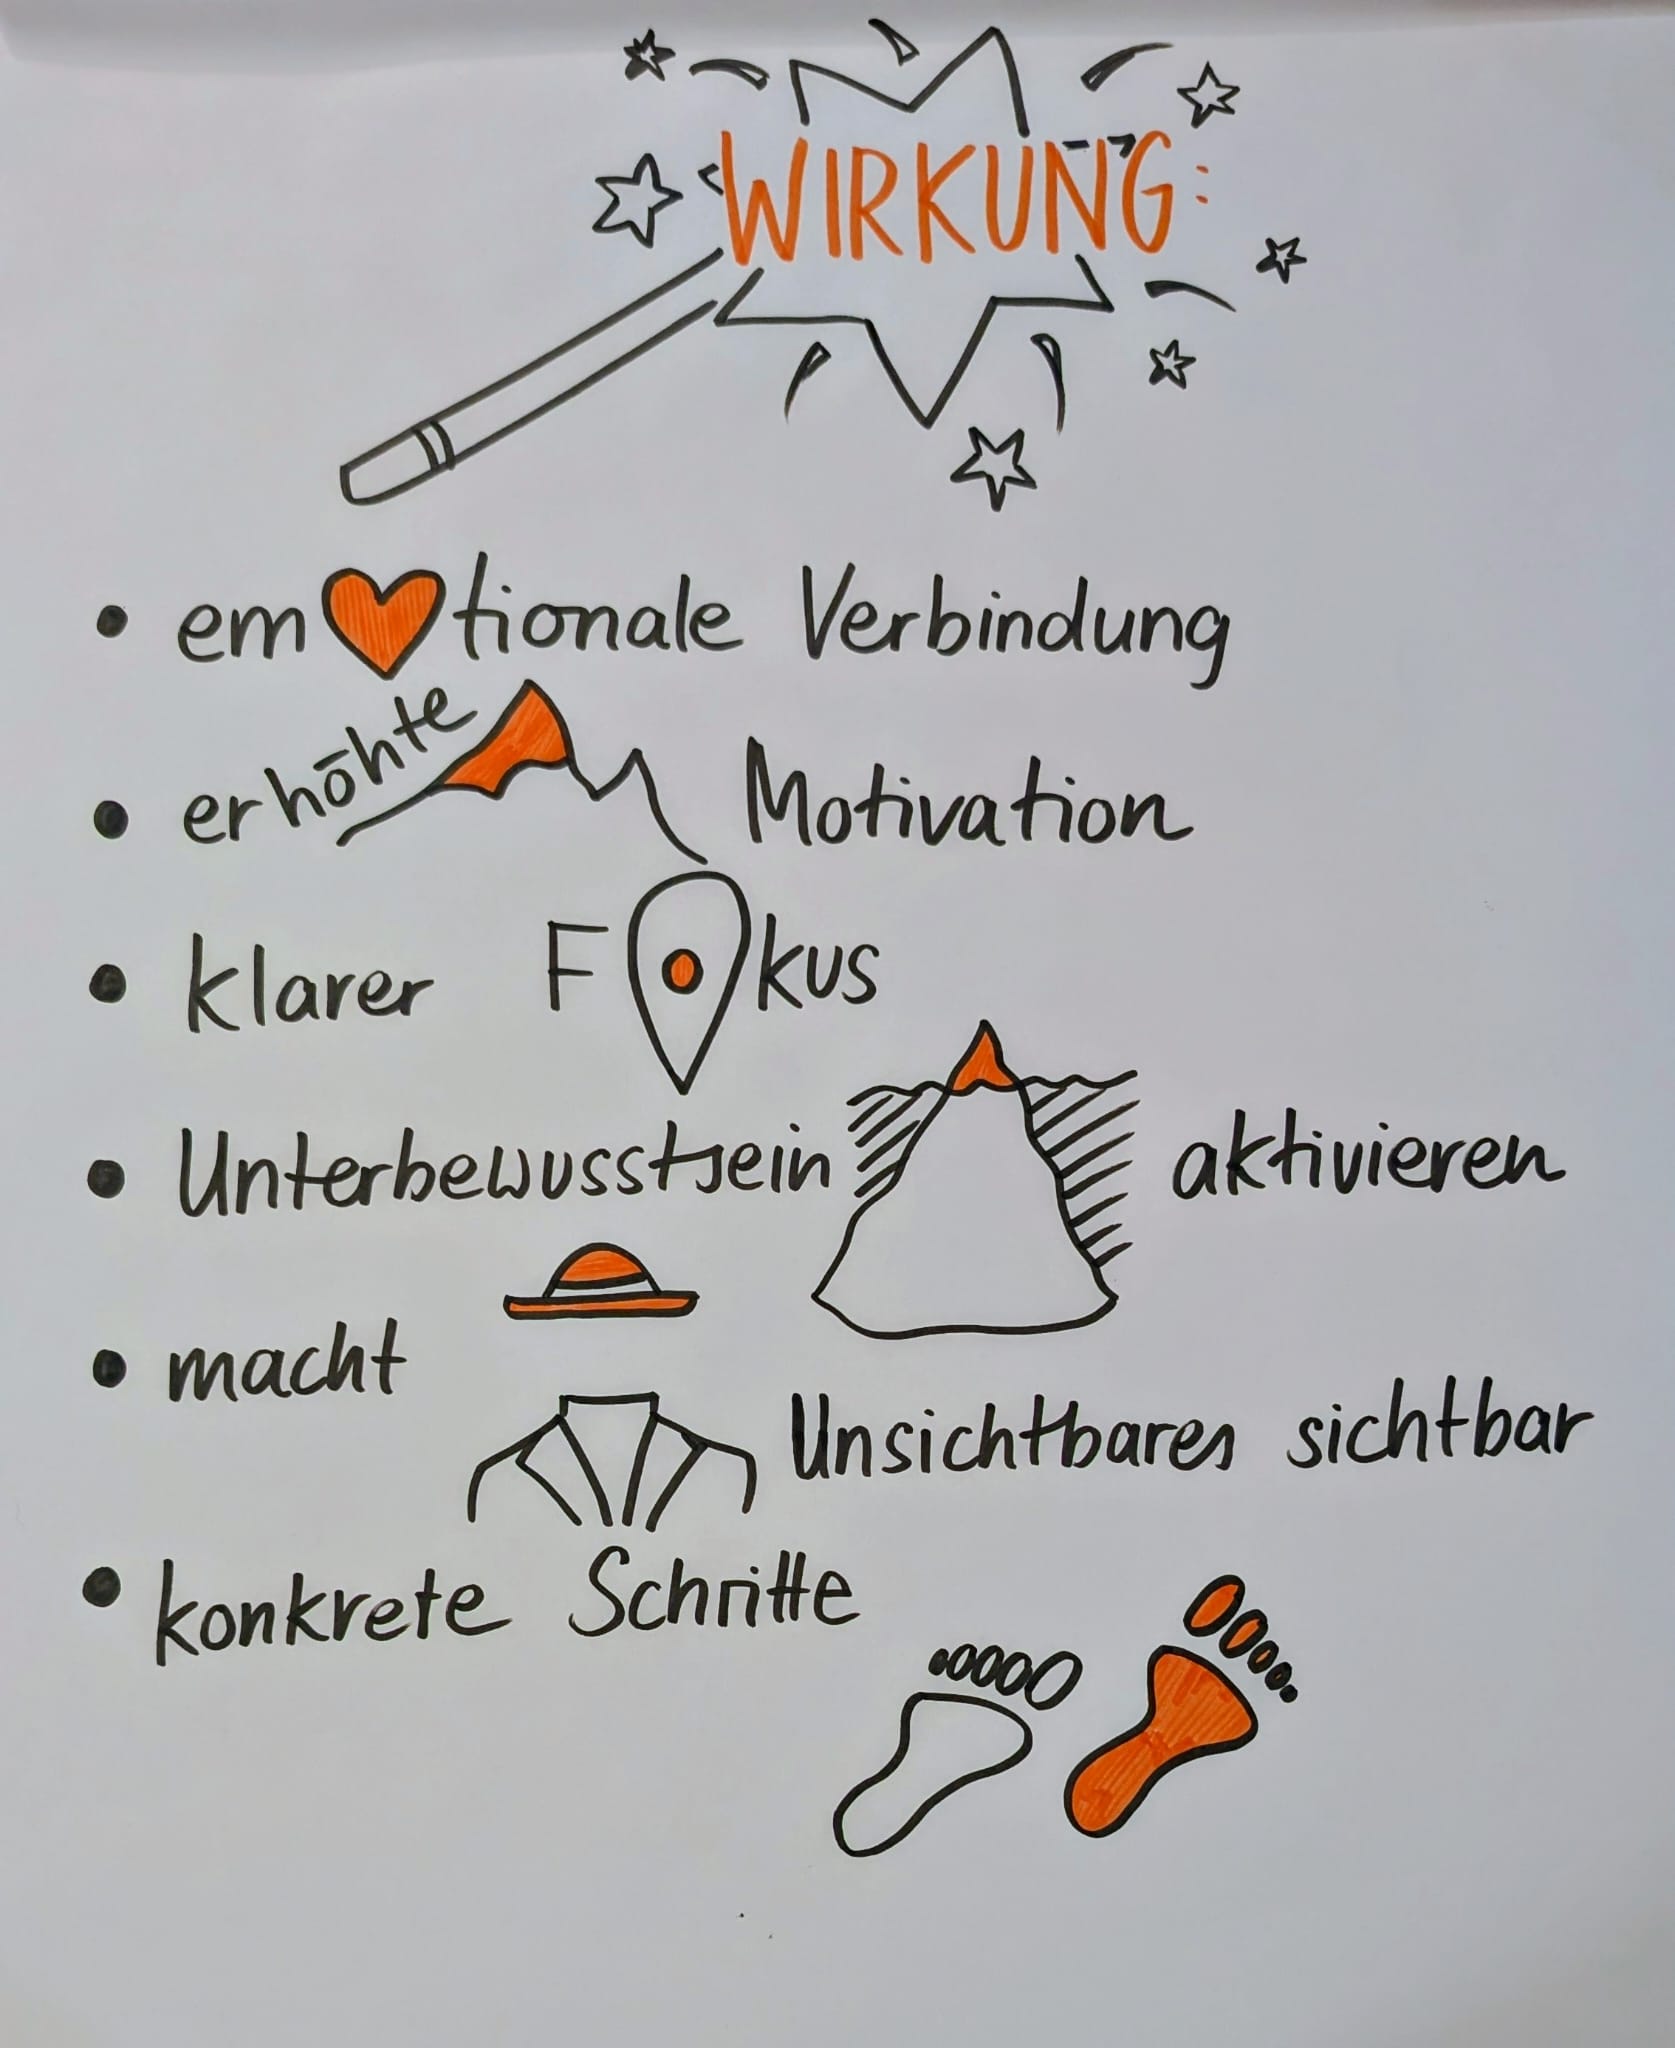 WIRKUNG:
• emotionale Verbindung
• erhöhte Motivation
• klarer Fokus
• Unterbewusstsein aktivieren
• macht Unsichtbares sichtbar
• konkrete Schritte